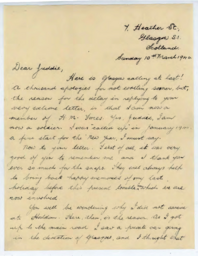 7, Heather St,
Glasgow S1.
Scotland
Sunday 10th March 1940
Dear Freddie,
Here is Glasgow calling at last!
A thousand apologies for not writing sooner, but,
the reason for the delay in replying to your
very welcome letter, is that I am now a
member of
now a soldier. I was called up in January
a fine start for the New Year, I must say!
Now to your letter. First of all it was very
good of you to remember me and I thank you
ever so much for the snaps. They will always help
to bring back happy memories of our last
holiday before this present in which we are
now involved.
You will be wondering why I did not
at. Here then, is the reason. As I got
up to the main road, I saw a private car going
in the direction of Glasgow, and I thought that